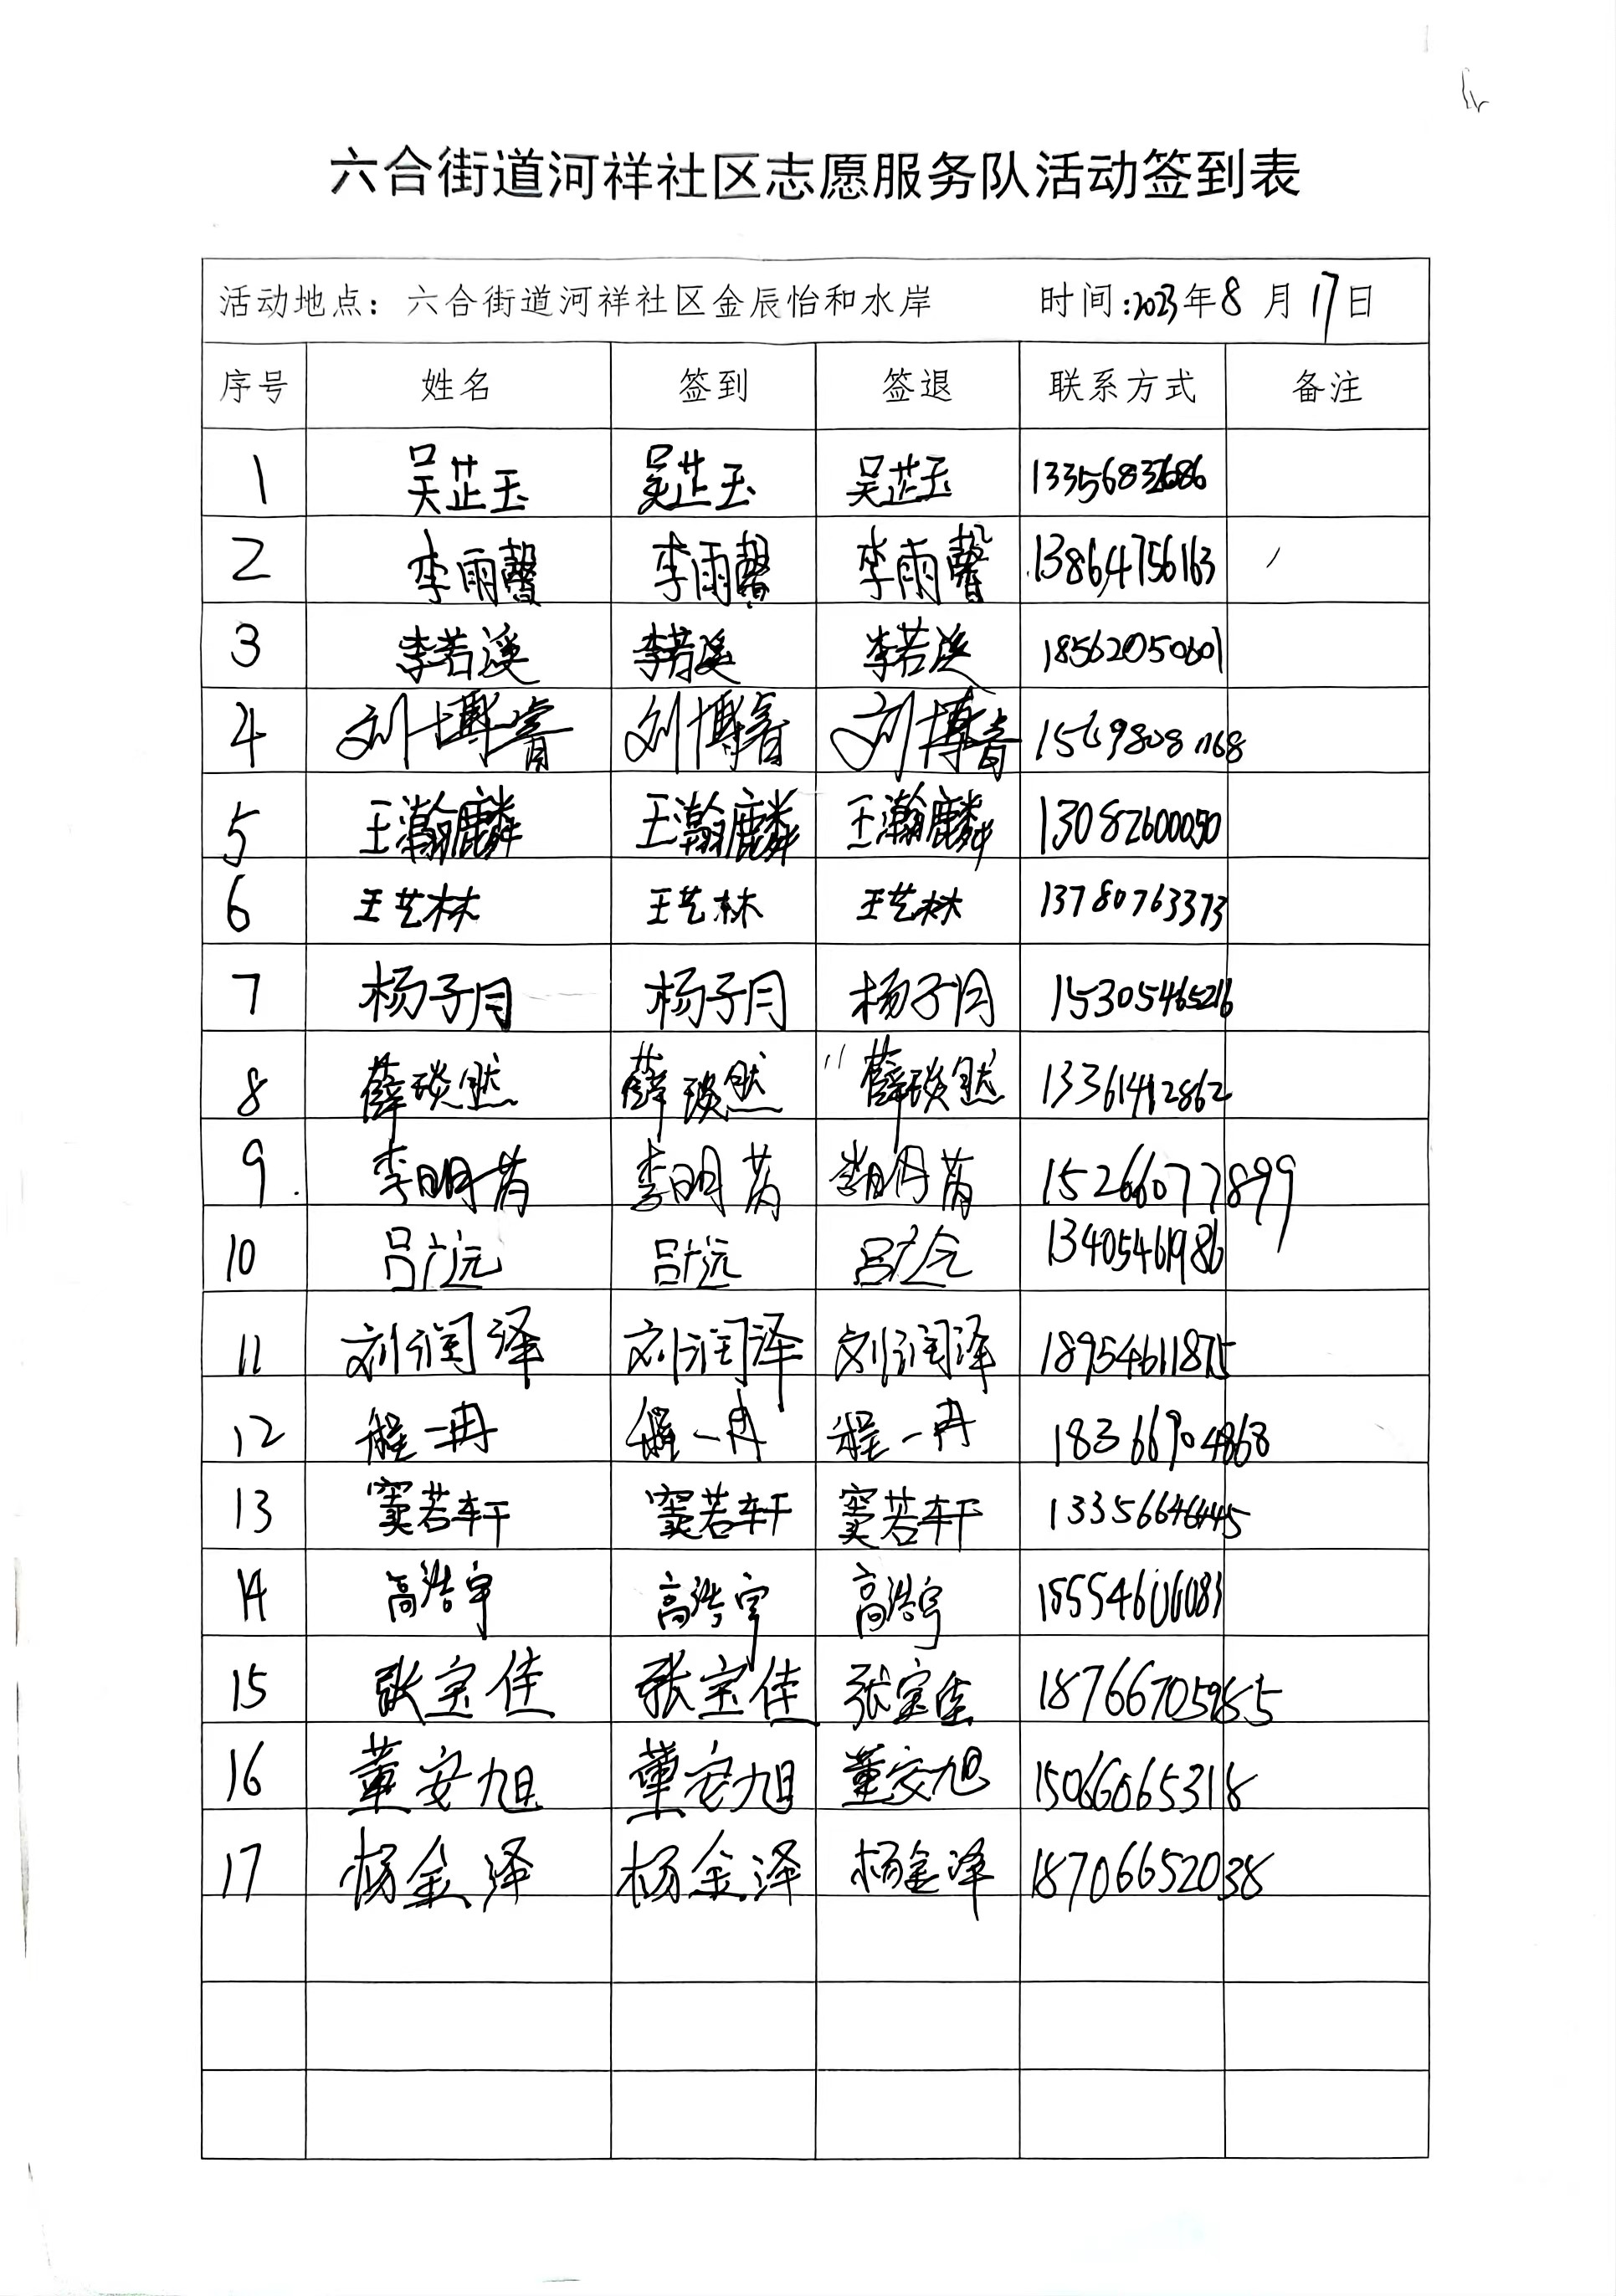 六合街道河祥社区志愿服务队活动签到表
活动地点：六合街道河祥社区金辰怡和水岸 时间:2023年8月17日
序号 姓名 签到 签退 联系方式 备注
1 吴芷玉 吴芷玉 吴芷玉 13356832686
2 李雨馨 李雨馨 李雨馨 13864756163
3 李若溪 李若溪 李若溪 18562050601
4 刘博睿 刘博睿 刘博睿
5 王瀚麟 王瀚麟 王瀚麟 13082600050
6 王艺林 王艺林 王艺林 13780763373
7 杨子月 杨子月 杨子月 15305465216
8 薛琰然 薛琰然 薛琰然 13361412862
9 李明芮 李明芮 李明芮 15266077899
10 吕广远 吕广远 吕广远 13405461986
11 刘润泽 刘润泽 刘润泽 18954611875
12 程一冉 程一冉 程一冉 18366904868
13 窦若轩 窦若轩 窦若轩 13356646445
14 高浩宇 高浩宇 高浩宇 15554606083
15 张宝佳 张宝佳 张宝佳 18766705985
16 董安旭 董安旭 董安旭 15066065318
17 杨金泽 杨金泽 杨金泽 18706652038